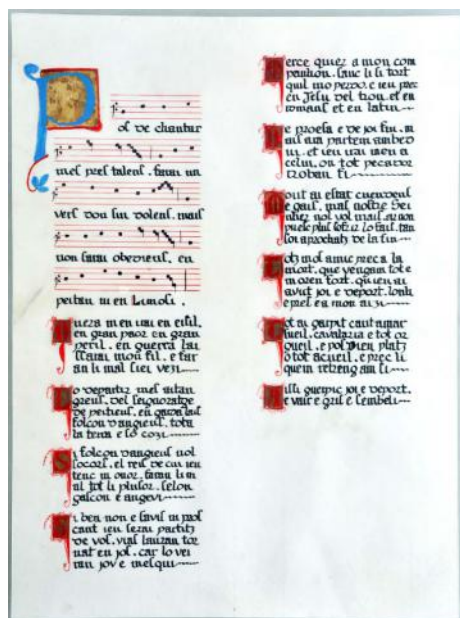 Pos de chantar
mes pres talenz. farai un
vers don sui dolenz. mais
non serai obedienz. en
peitau ni en Limozi.
Quera men irai en eisil.
en gran paor en gran
peril. en guerra lai
ssarai mon fil. e far
an li mal siei vezi
lo departirs mes aitan
greus. del seignoratge
de peitieus. en garda lais
folcon dangieus. tota
la terra e so cozi
Si folcos dangieus nol
socor. el reis de cui ieu
tenc monor. faran li m
al tot li plusor. felon
gascon e angevi
Si ben non e savis ni pros
cant ieu serai partitz
de vos. vias lauran tor
nat en jos. car lo vei
ran jove mesqui
Merce quier a mon com
paignon. sanc li fi tort
quil mo perdo. e ieu prec
en Jesu del tron. et en
romans et en latin
De proesa e de joi fui. m
ais ara partem ambedu
ui. et ieu irai men a
celui. on tot pecador
troban fi
Mout ai estat cuendes
e gais. mas nostre Sei
nher nol vol mais. ar non
puesc plus sofrir lo fais. tan
soi aprochatz de la fin
Totz mos amics prec a la
mort. que vengan tot e
monren fort. quieu ai
avut joi e deport. lonh
e pres et en mon aizi
Tot ai guerpit cant amar
sueil. cavalaria et tor
gueil. e pos Dieu platz
o tot acueil. e prec li
quem retengam li
Aissi guerpisc joi e deport.
e vair e gris e sembeli